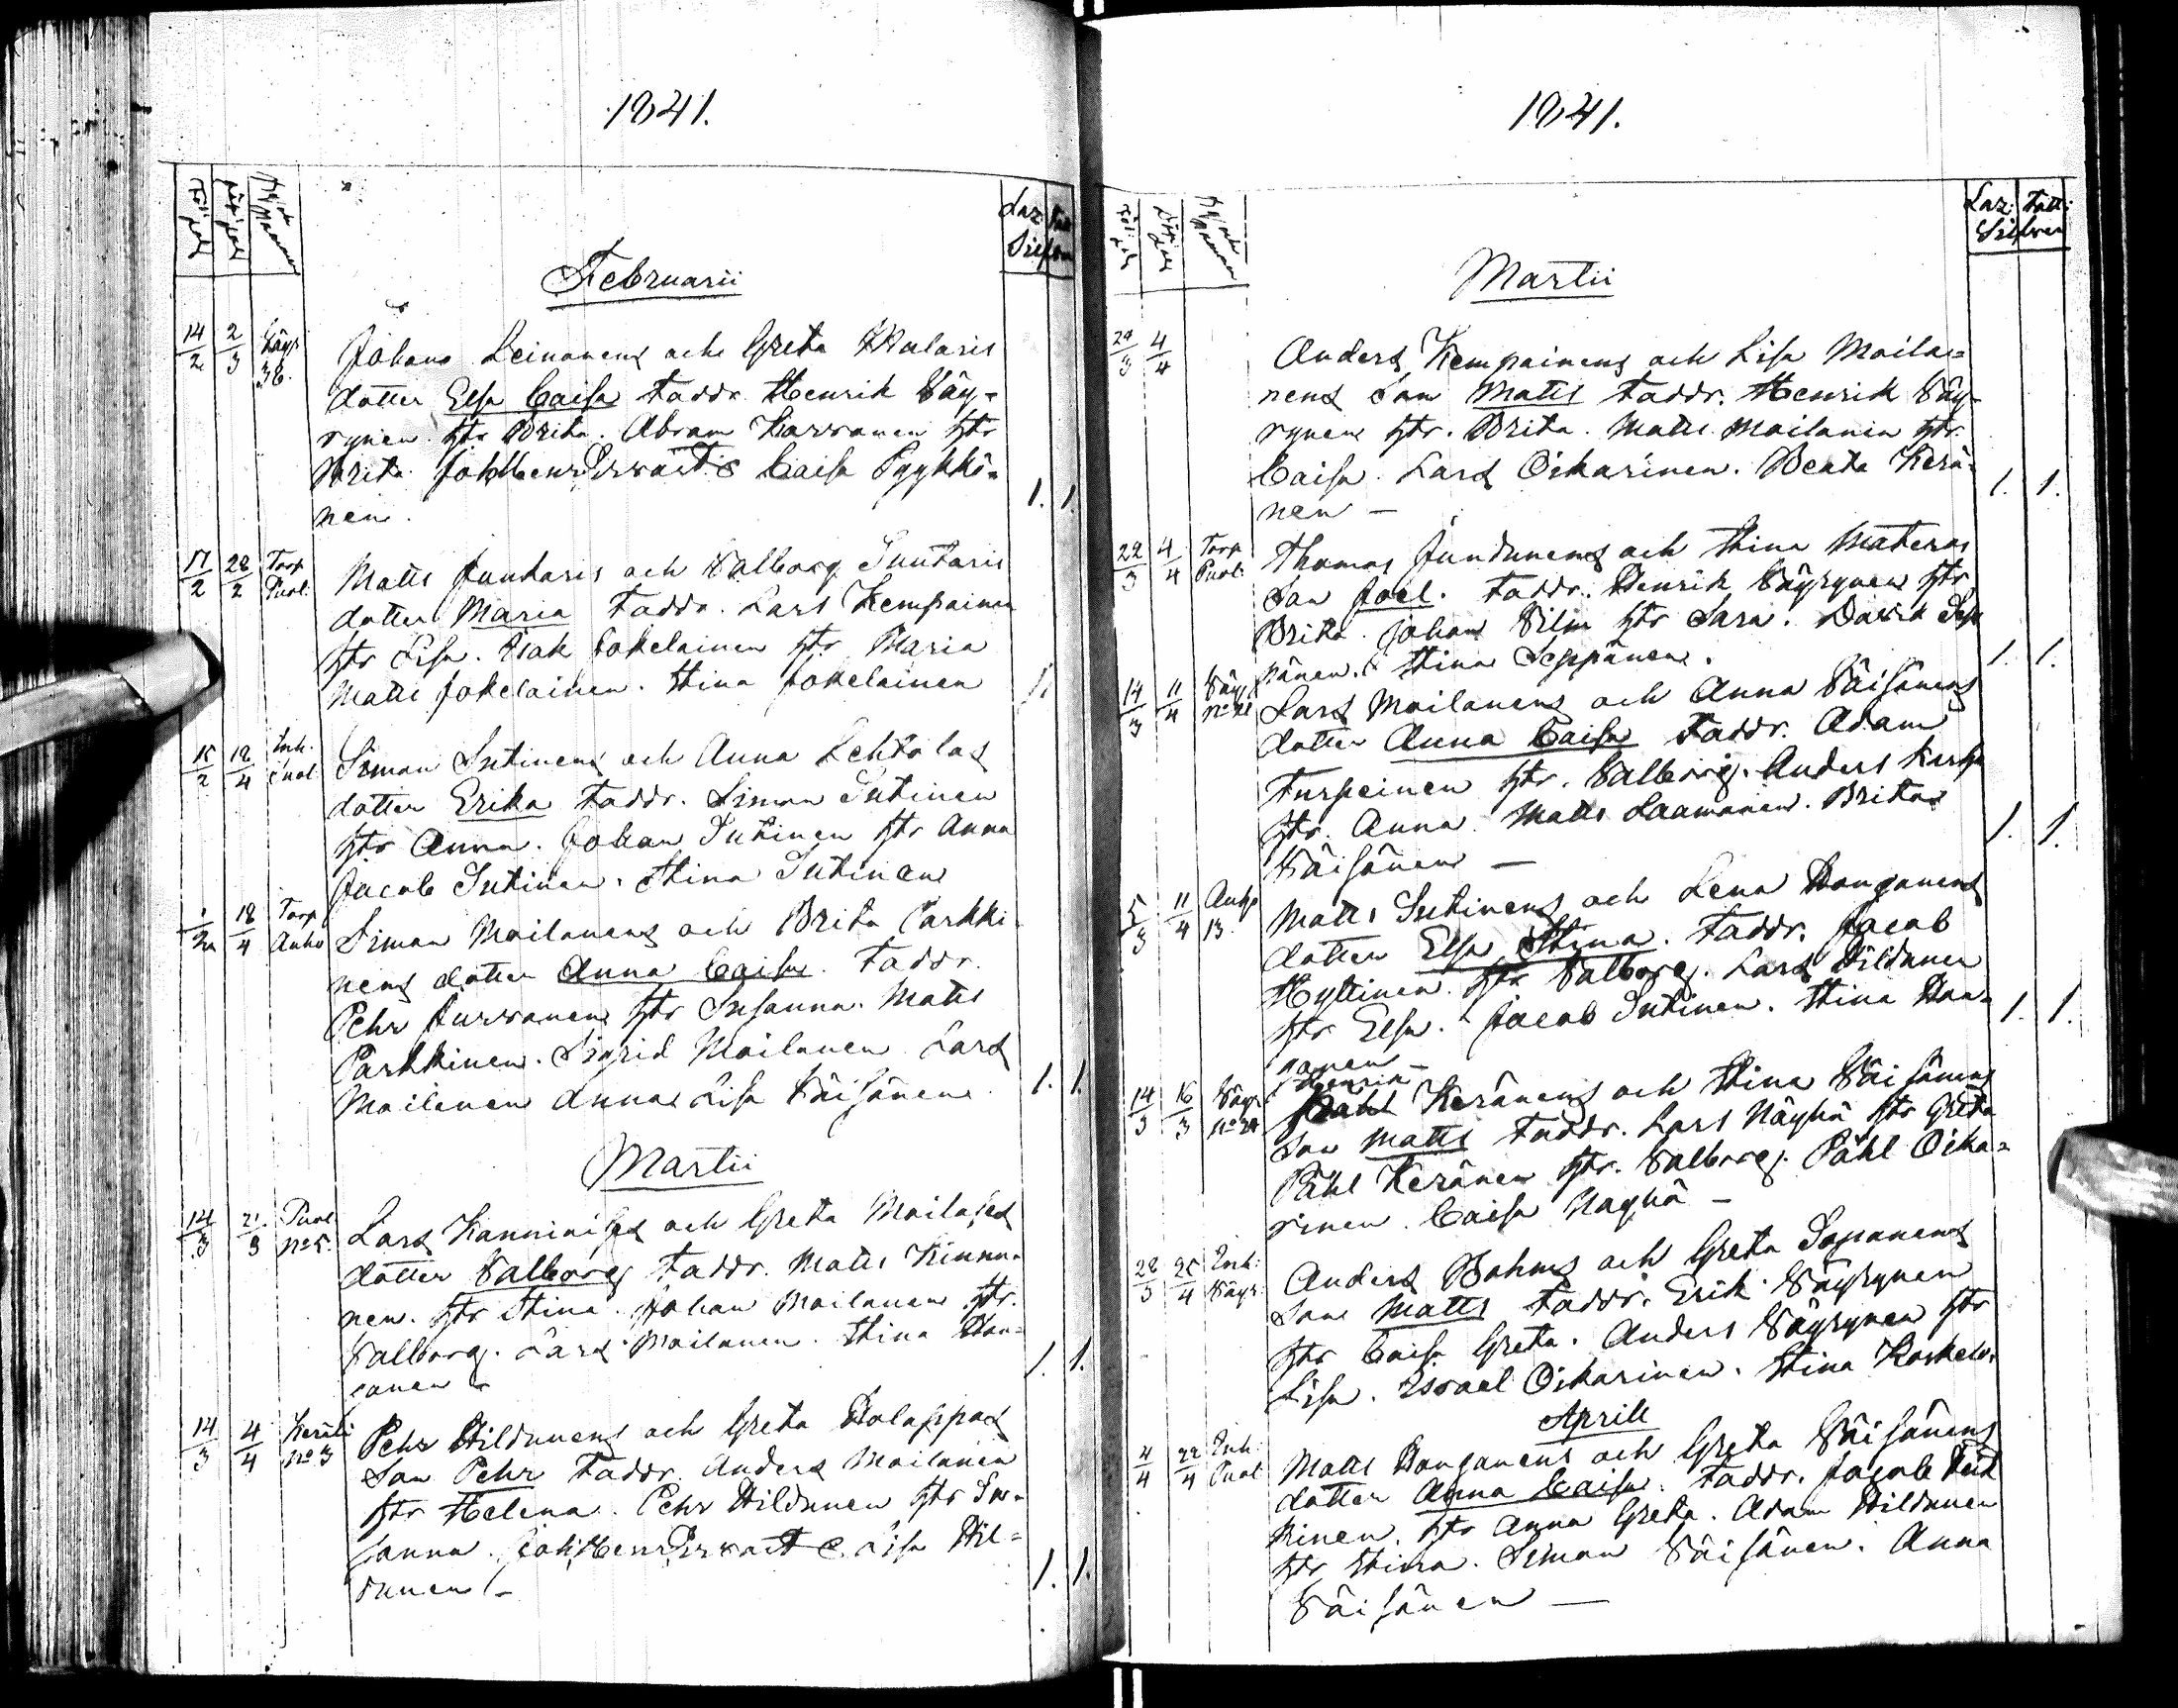 1841.
Februarii
14/2 2/3 Väyr 36. Johan Leinonens och Greta Mularis
dotter Elsa Caisa Faddr. Henrik Väy-
rynen hr Brita. Abram Karvanen hr
Brita. Joh Henr Ervast & Caisa Pyykkö-
nen. 1. 1.
17/2 28/2 Torp Puol: Matts Juntaris och Valborg Suutaris
dotter Maria Faddr. Lars Kempainen
hr Lisa. Isak Jokelainen hr Maria
Matts Jokelainen. Stina Jokelainen
15/2 12/4 Inh. Puol Simon Sutinens och Anna Lehtolas
dotter Erika Faddr. Simon Sutinen
hr Anna. Johan Sutinen hr Anna
Jacob Sutinen. Stina Sutinen
18/4 Torp Anho Simon Moilanens och Brita Parkki-
nens dotter Anna Caisa. Faddr.
Pehr Jurvanen hr Susanna. Matts
Parkkinen. Sigrid Moilanen Lars
Moilanen Anna Lisa Väisänen. 1. 1.
Martii
14/3 21/3 Puol No 5. Lars Kanninises och Greta Moilases
dotter Valborg Faddr. Matts Kinnu-
nen. hr Stina. Johan Moilanen hr.
Valborg. Lars Moilanen. Stina Hon-
ganen 1. 1.
14/3 4/4 Keräl: No 3 Pehr Hildunens och Greta Holappas
Son Pehr Faddr. Anders Moilanen
hr Helena. Pehr Hildunen hr Su-
sanna. Joh Henr Ervast & Lisa Hil-
dunen – 1. 1.
1841.
Laz: Fatt:
Silfver
Martii
4/4 Anders Kempainens och Lisa Moila-
nens Son Matts Faddr. Henrik Väy-
rynen hr. Brita. Matts Moilanen hr.
Caisa. Lars Oikarinen. Beata Kerä-
nen – 1. 1.
22/3 4/4 Torp Puol: Thomas Jundunens och Stina Materos
Son Joel. Faddr. Henrik Väyrynen hr
Brita. Johan Vilm hr Sara. David Sep
pänen. & Stina Seppänen. 1. 1.
14/3 11/4 Väyr No 21 Lars Moilanens och Anna Väisänens
dotter Anna Caisa Faddr. Adam
Turpeinen hr. Valborg. Anders
hr. Anna. Matts Laamanen. Brita
Väisänen – 1. 1.
5/3 11/4 Anho 13. Matts Sutinens och Lena Honganens
dotter Elsa Stina. Faddr. Jacob
Hyttinen. hr Valborg. Lars Hildunen
hr Elsa. Jacob Sutinen. Stina Hon-
ganen – 1. 1.
14/3 16/3 Väyr No 24 Henrik Keränens och Stina Väisänens
Son Matts Faddr. Lars Näyhä hr Greta
Påhl Keränen hr. Valborg. Påhl Oika-
rinen. Caisa Näyhä –
28/3 25/4 Inh: Väyr: Anders Bohms och Greta Saxanens
Son Matts Faddr. Erik Väyrynen
hr Caisa Greta. Anders Väyrynen hr
Lisa. Israel Oikarinen. Stina Koskelo.
Aprill
4/4 22/4 Inh. Puol Matts Honganens och Greta Väisänens
dotter Anna Caisa. Faddr. Jacob Heik
kinen. hr Anna Greta. Adam Hildunen
hr Stina. Simon Väisänen. Anna
Väisänen –